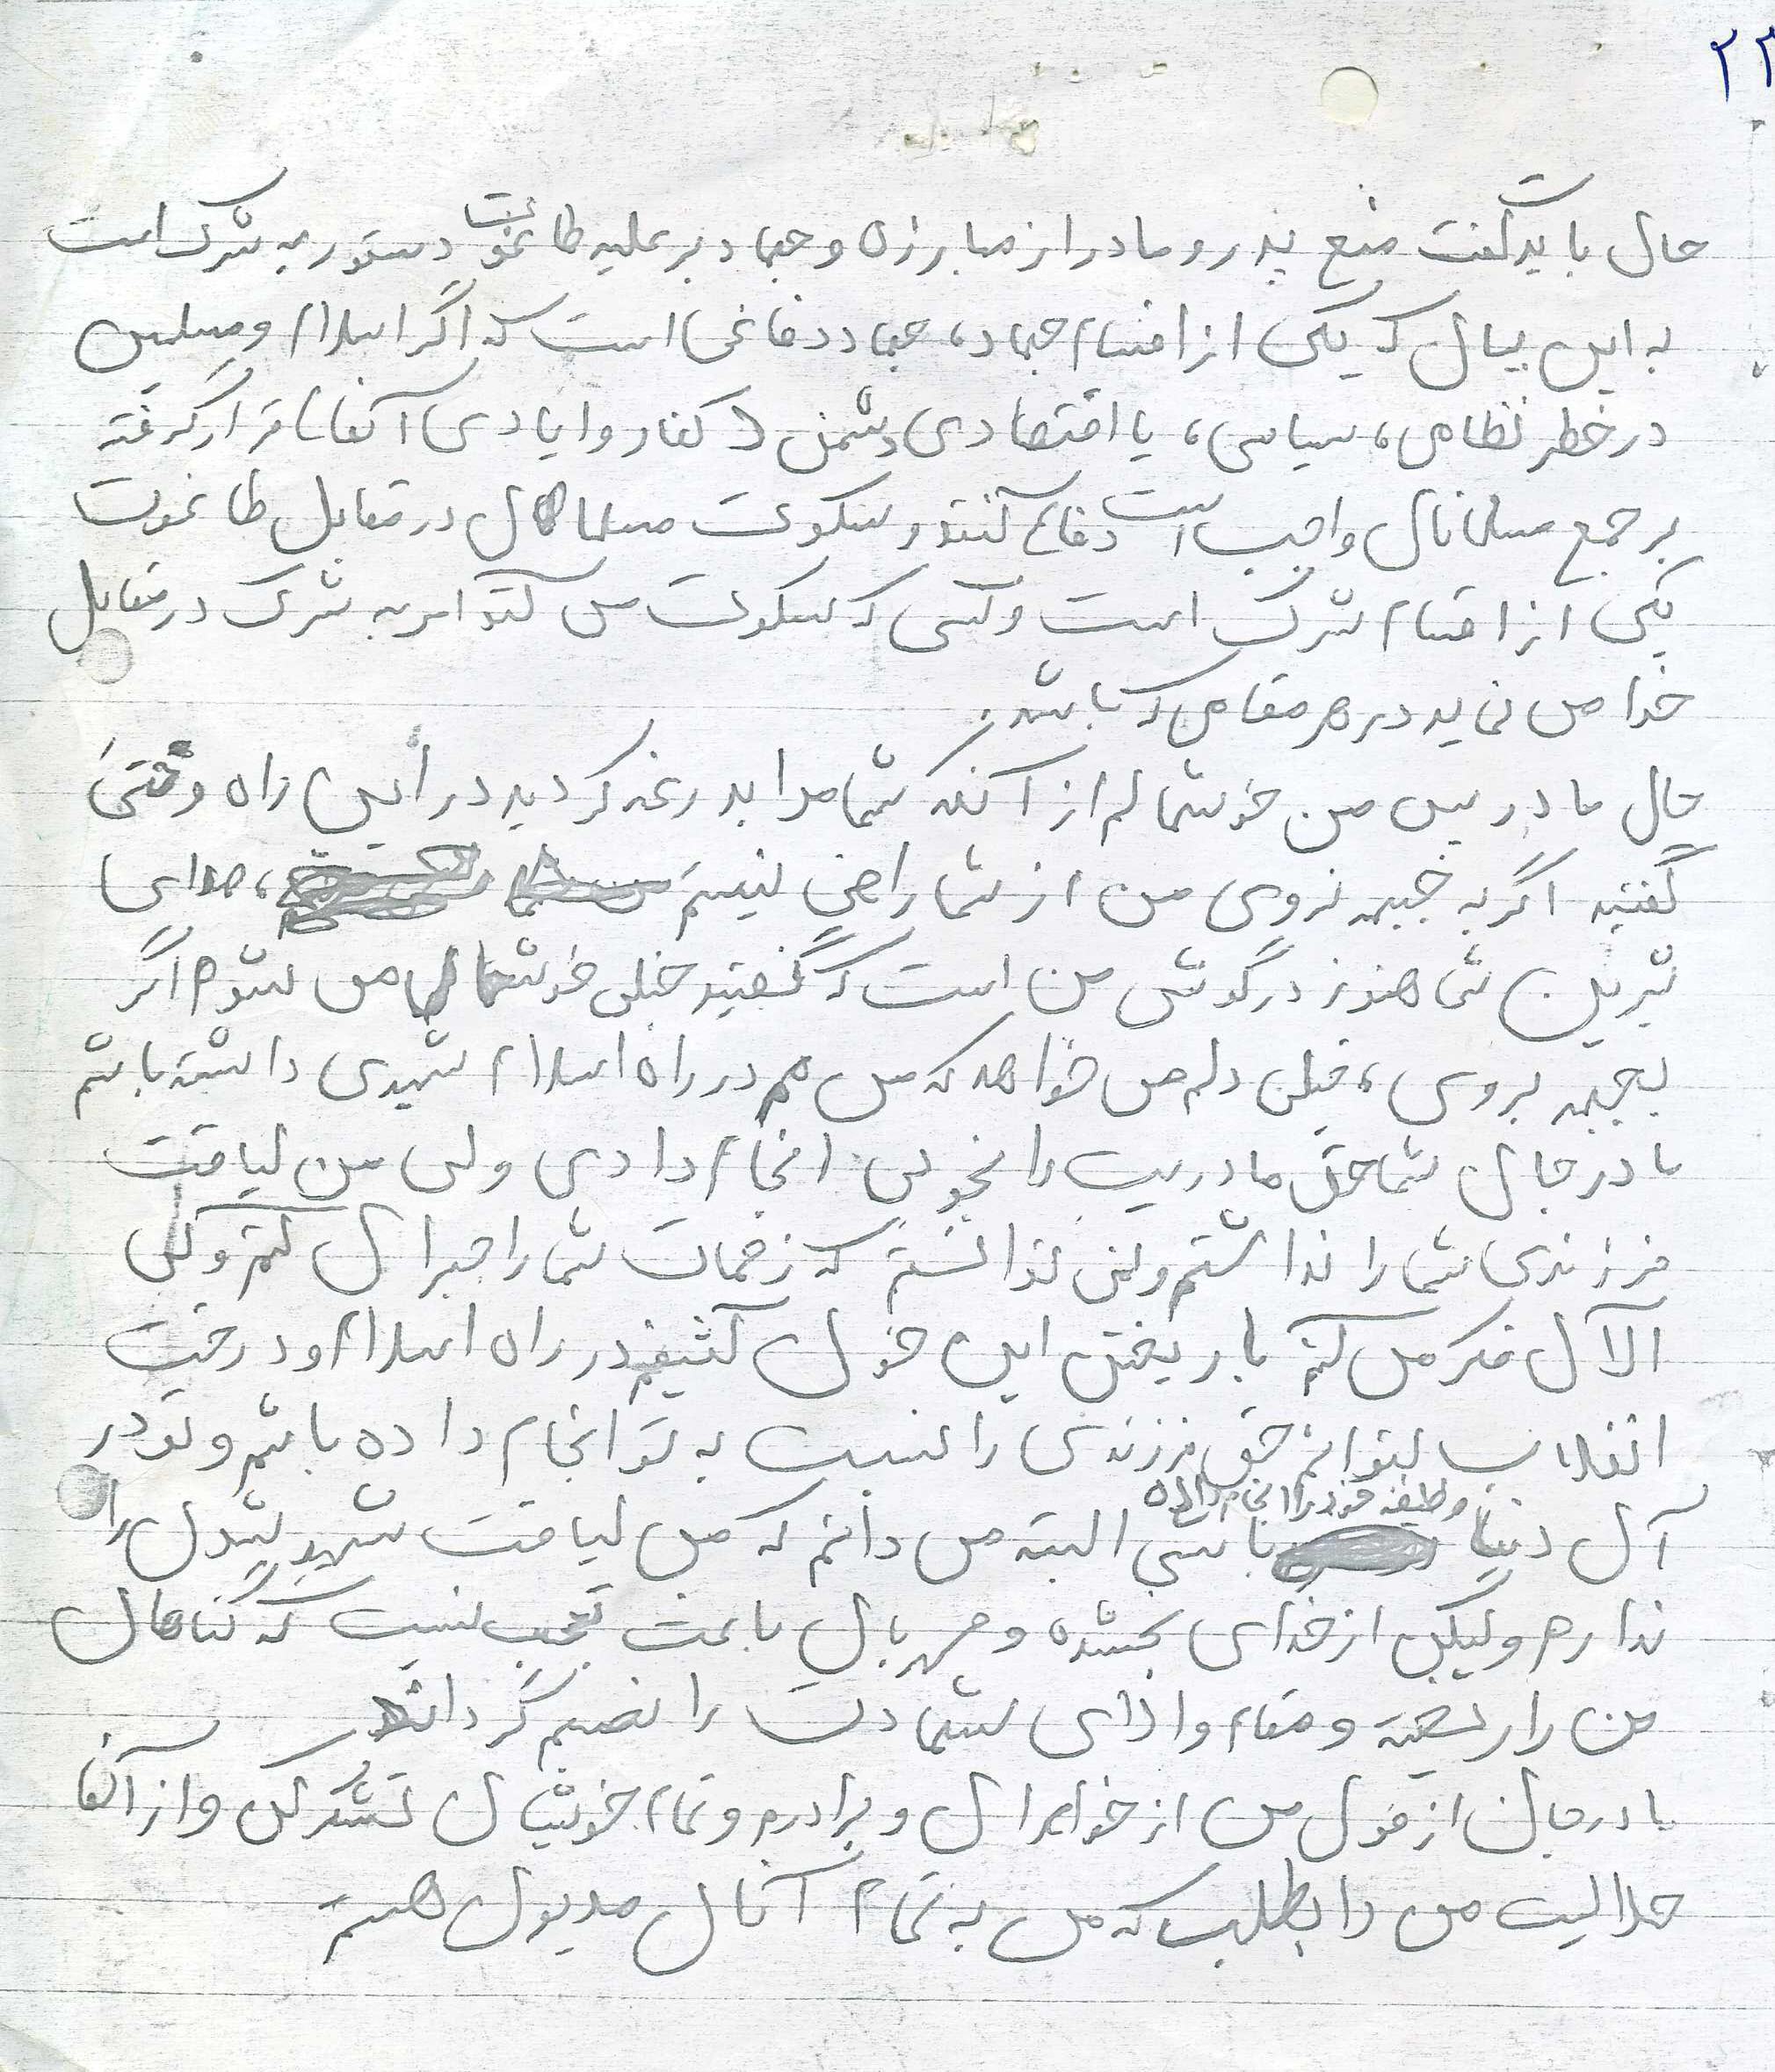 ۲۲
حال باید گفت منع پدر و مادر از مبارزه و جهاد بر علیه طاغوت دستور به شرک است
به این بیان که یکی از اقسام جهاد، جهاد دفاعی است که اگر اسلام و مسلمین
در خطر نظامی، سیاسی، یا اقتصادی دشمن (کفار و ایادی آنها) قرار گرفته
بر جمیع مسلمانان واجب است دفاع کنند و سکوت مسلمانان در مقابل طاغوت
یکی از اقسام شرک است و کسی که سکوت می کند امر به شرک در مقابل
خدا می نماید در هر مقامی که باشد.
حال مادر پس من خوشحالم از آنکه شما مرا بدرغه کردید در این راه وقتی
گفتید اگر به جبهه نروی من از شما راضی نیستم، صدای
شیرین شما هنوز در گوش من است که گفتید خیلی خوشحال می شوم اگر
بجبهه بروی، خیلی دلم می خواهد که من هم در راه اسلام شهیدی داشته باشم
مادر جان شما حق مادریت را بخوبی انجام دادی ولی من لیاقت
فرزندی شما را نداشتم و نمی توانستم که زحمات شما را جبران کنم ولی
الآن فکر می کنم با ریختن این خون کثیفم در راه اسلام و درخت
انقلاب بتوانم حق فرزندی را نسبت به تو انجام داده باشم و تو در
آن دنیا وظیفه خود را انجام داده باشی البته می دانم که من لیاقت شهید شدن را
ندارم ولیکن از خدای بخشنده و مهربان باعث تعجب نیست که گناهان
من را ریخته و مقام والای شهادت را نصیبم گرداند
مادر جان از قول من از خواهران و برادرم و تمام خویشان تشکر کن و از آنها
حلالیت من را بطلب که من به تمام آنان مدیون هستم